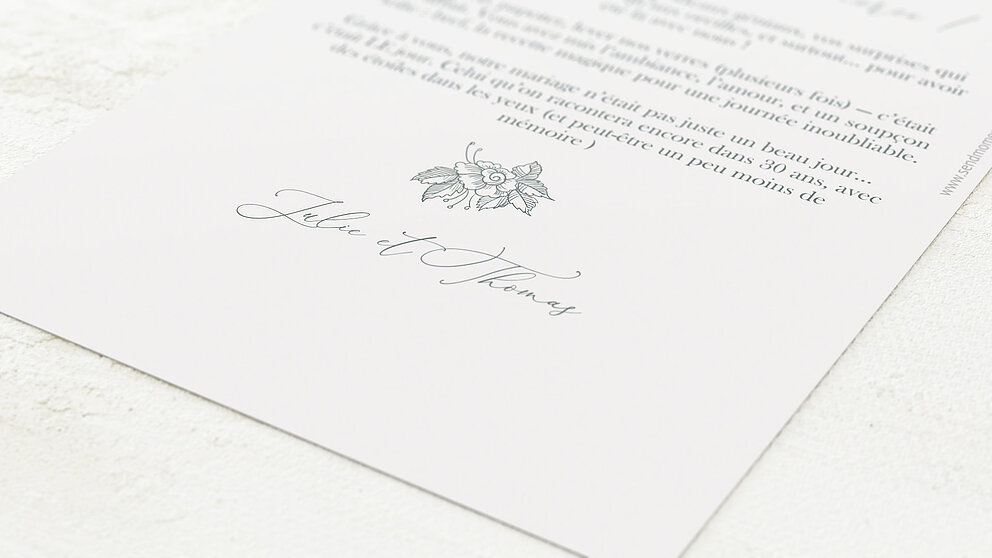 vos surprises qui
et surtout... pour avoir
lever nos verres (plusieurs fois) — c'était
l'ambiance, l'amour, et un soupçon
la recette magique pour une journée inoubliable.
Grâce à vous, notre mariage n'était pas juste un beau jour...
c'était LE jour. Celui qu'on racontera encore dans 30 ans, avec
des étoiles dans les yeux (et peut-être un peu moins de
mémoire)
Julie et Thomas
www.sendmome